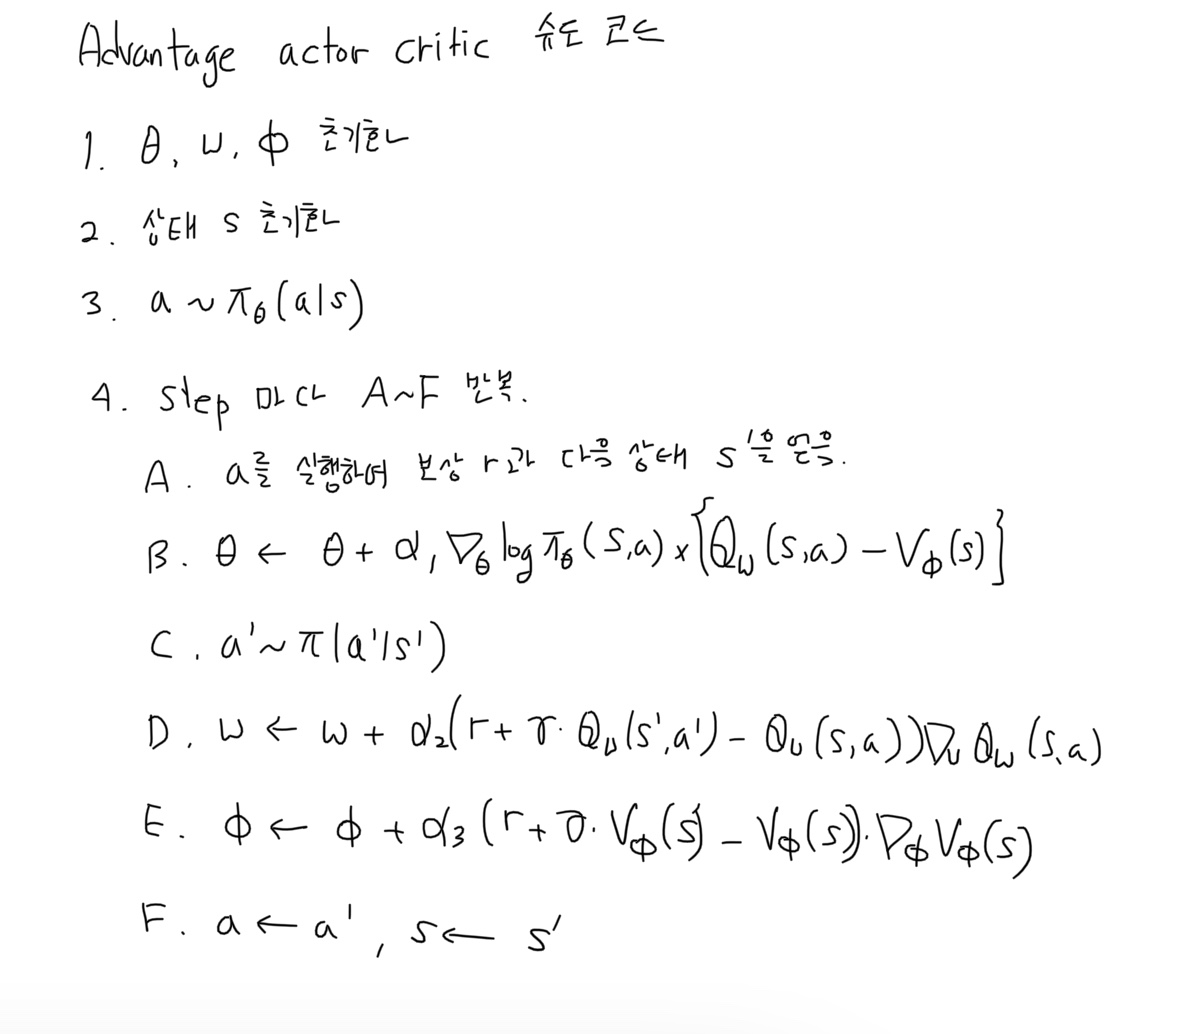 Advantage actor critic 슈도 코드
1. θ, w, ϕ 초기화
2. 상태 s 초기화
3. a ~ π_θ(a|s)
4. step 마다 A~F 반복.
A. a를 실행하여 보상 r과 다음 상태 s'을 얻음.
B. θ ← θ + α₁ ∇_θ log π_θ(s,a) × {Q_w(s,a) − V_ϕ(s)}
C. a' ~ π(a'|s')
D. w ← w + α₂(r + γ· Q_w(s',a') − Q_w(s,a))∇_w Q_w(s,a)
E. ϕ ← ϕ + α₃(r + γ· V_ϕ(s') − V_ϕ(s))·∇_ϕ V_ϕ(s)
F. a ← a', s ← s'